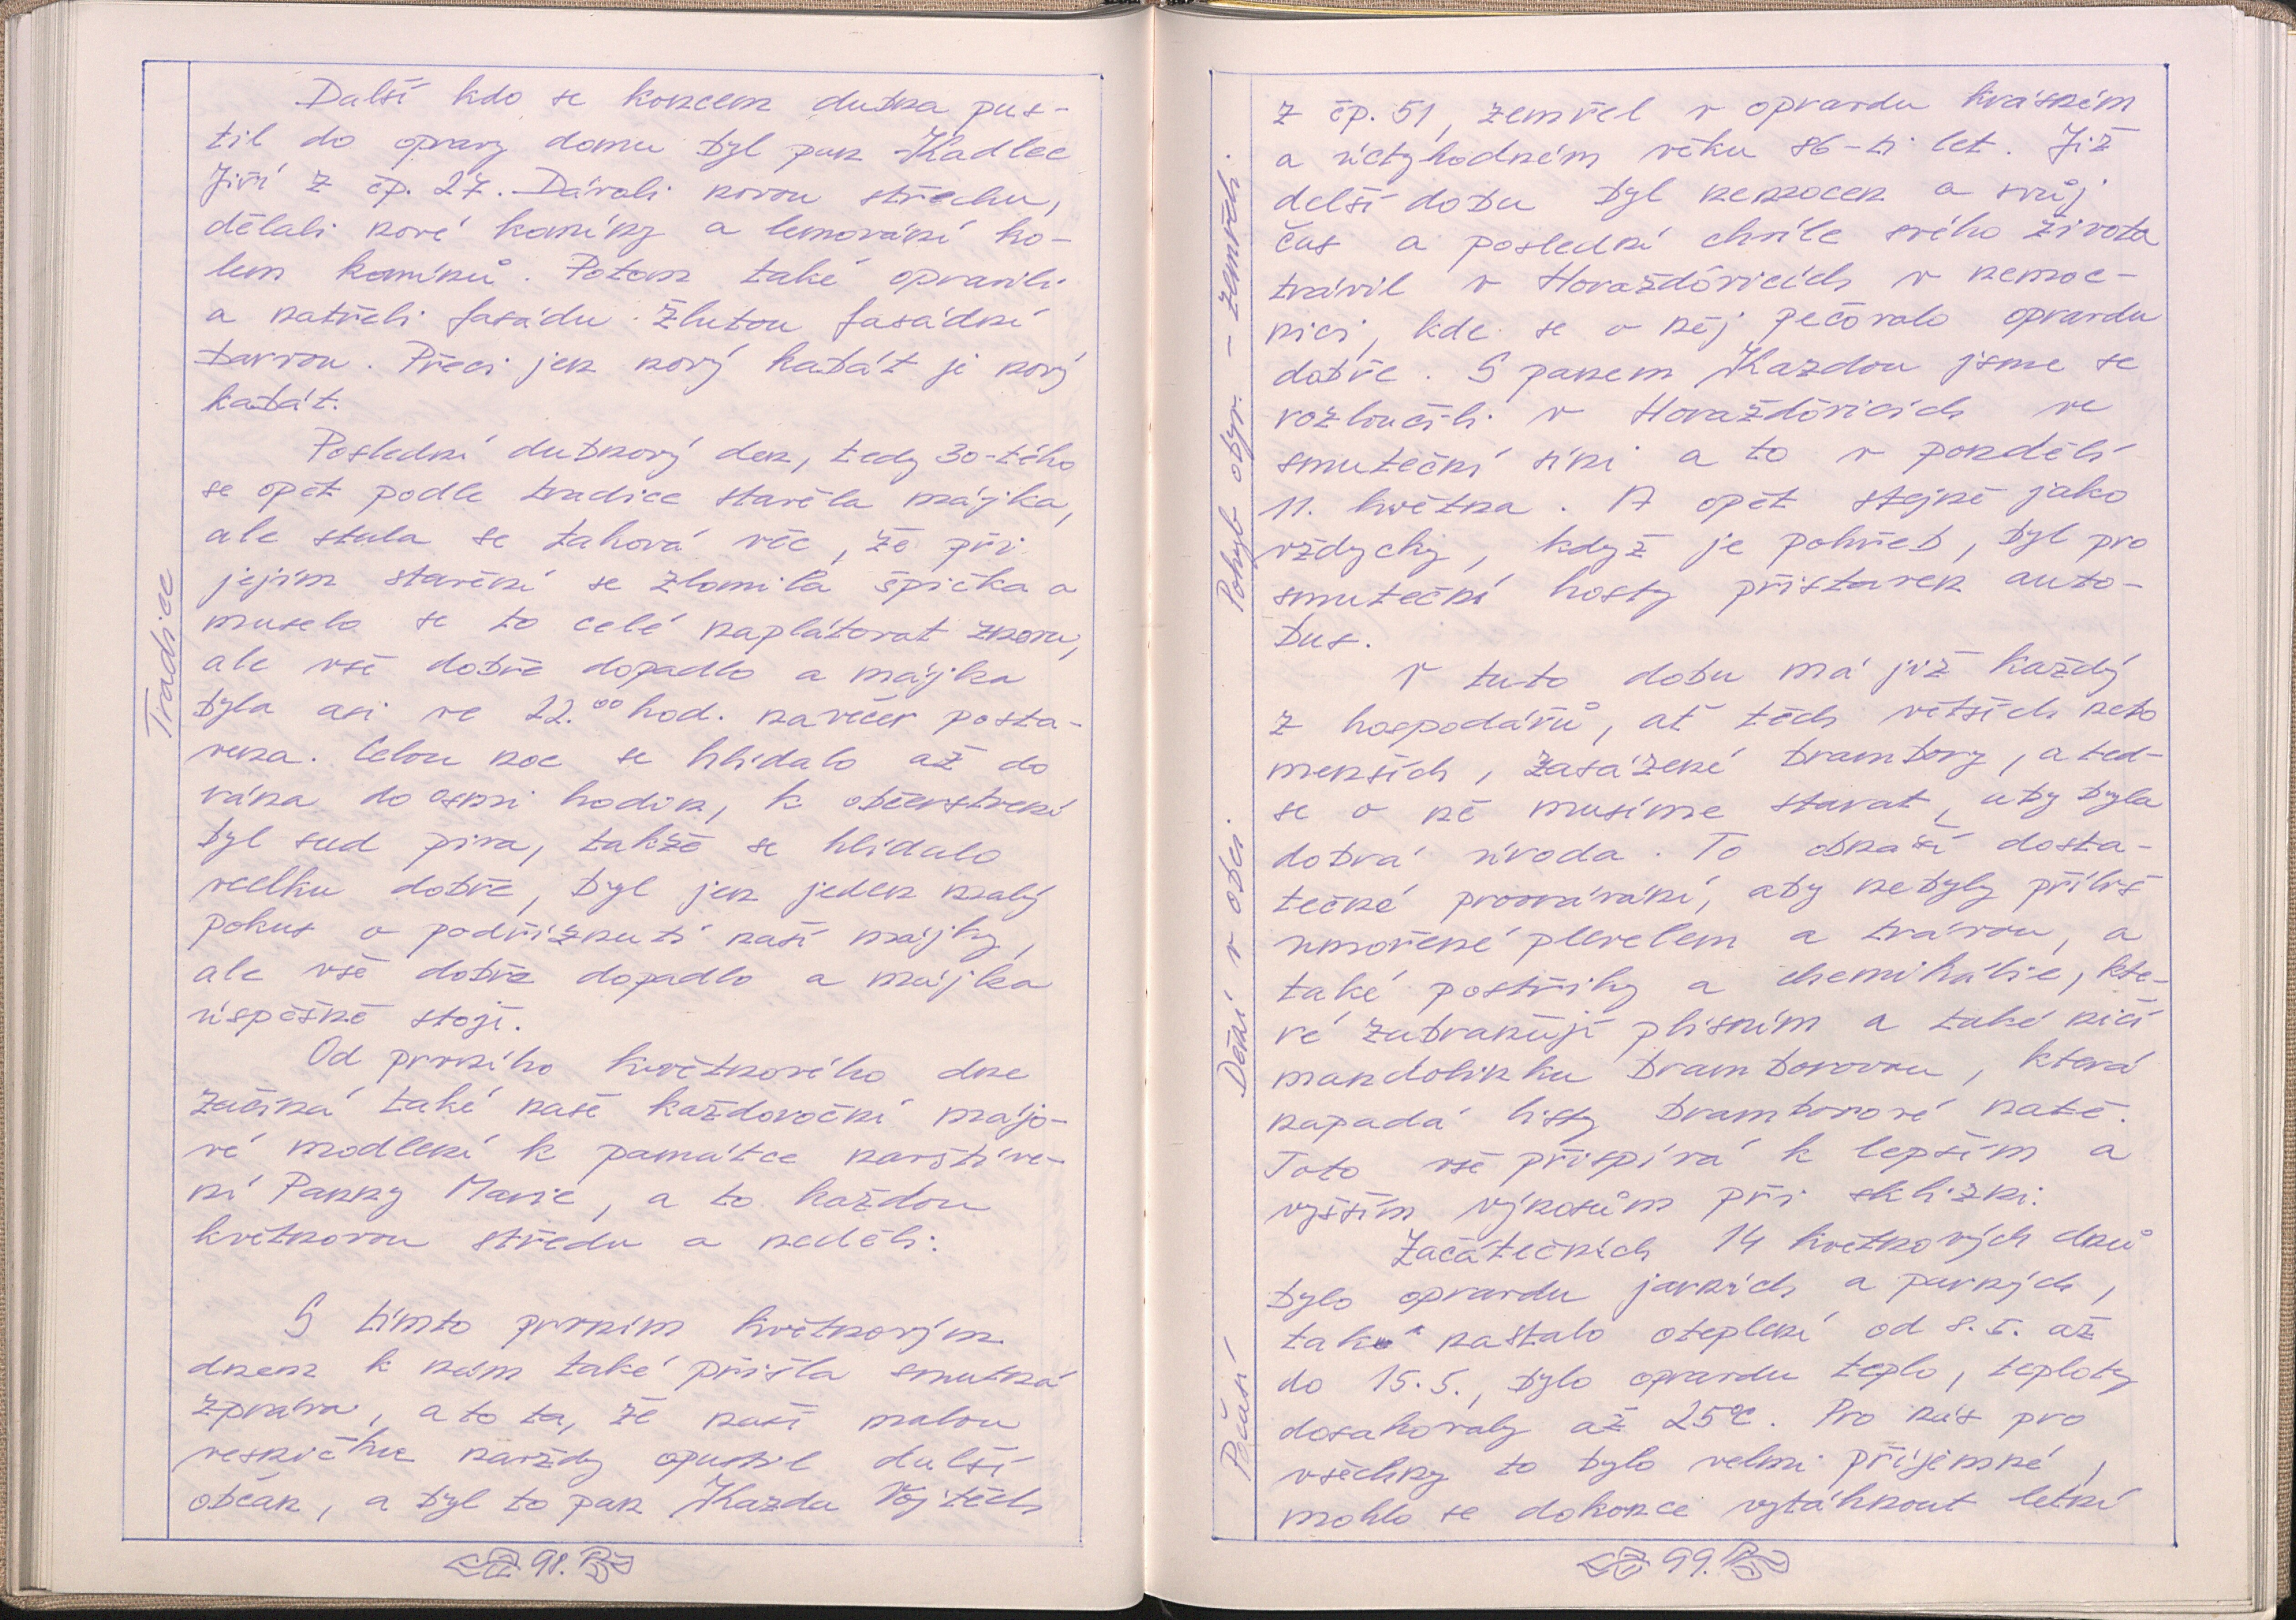 Další kdo se koncem dubna pus-
til do opravy domu byl pan Kadlec
Jiří z čp. 27. Dávali novou střechu,
dělali nové komínky a lemování ko-
lem komínků. Potom také opravili
a natřeli fasádu žlutou fasádní
barvou. Přeci jen nový kabát je nový
kabát.
Tradice
Poslední dubnový den, tedy 30-tého
se opět podle tradice stavěla májka,
ale stala se taková věc, že při
jejím stavění se zlomila špička a
muselo se to celé naplátovat znovu,
ale vše dobře dopadlo a májka
byla asi ve 22.00 hod. navečer posta-
vena. Celou noc se hlídalo až do
rána do osmi hodin, k občerstvení
byl sud piva, takže se hlídalo
vcelku dobře, byl jen jeden malý
pokus o podříznutí naší májky,
ale vše dobře dopadlo a májka
úspěšně stojí.
Od prvního květnového dne
začíná také naše každoroční májo-
vé modlení k památce navštíve-
ní Panny Marie, a to každou
květnovou středu a neděli.
S tímto prvním květnovým
dnem k nám také přišla smutná
zpráva, a to ta, že naší malou
vesničku navždy opustil další
občan, a byl to pan Kazda Vojtěch
98.
Pohyb obyv. - zemřelí.
z čp. 51, zemřel v opravdu krásném
a úctyhodném věku 86-ti let. Již
delší dobu byl nemocen a svůj
čas a poslední chvíle svého života
trávil v Horažďovicích v nemoc-
nici, kde se o něj pečovalo opravdu
dobře. S panem Kazdou jsme se
rozloučili v Horažďovicích ve
smuteční síni a to v pondělí
11. května. A opět stejně jako
vždycky, když je pohřeb, byl pro
smuteční hosty přistaven auto-
bus.
Dění v obci.
V tuto dobu má již každý
z hospodářů, ať těch větších nebo
menších, zasázené brambory, a teď
se o ně musíme starat, aby byla
dobrá úroda. To obnáší dosta-
tečné proorávání, aby nebyly příliš
umořené plevelem a trávou, a
také postřiky a chemikálie, kte-
ré zabraňují plísním a také ničí
mandolinku bramborovou, která
napadá listy bramborové natě.
Toto vše přispívá k lepším a
vyšším výnosům při sklizni.
Počasí
Začátečních 14 květnových dnů
bylo opravdu jarních a parných,
také nastalo oteplení od 8.5. až
do 15.5., bylo opravdu teplo, teploty
dosahovaly až 25°C. Pro nás pro
všechny to bylo velmi příjemné,
mohlo se dokonce vytáhnout letní
99.